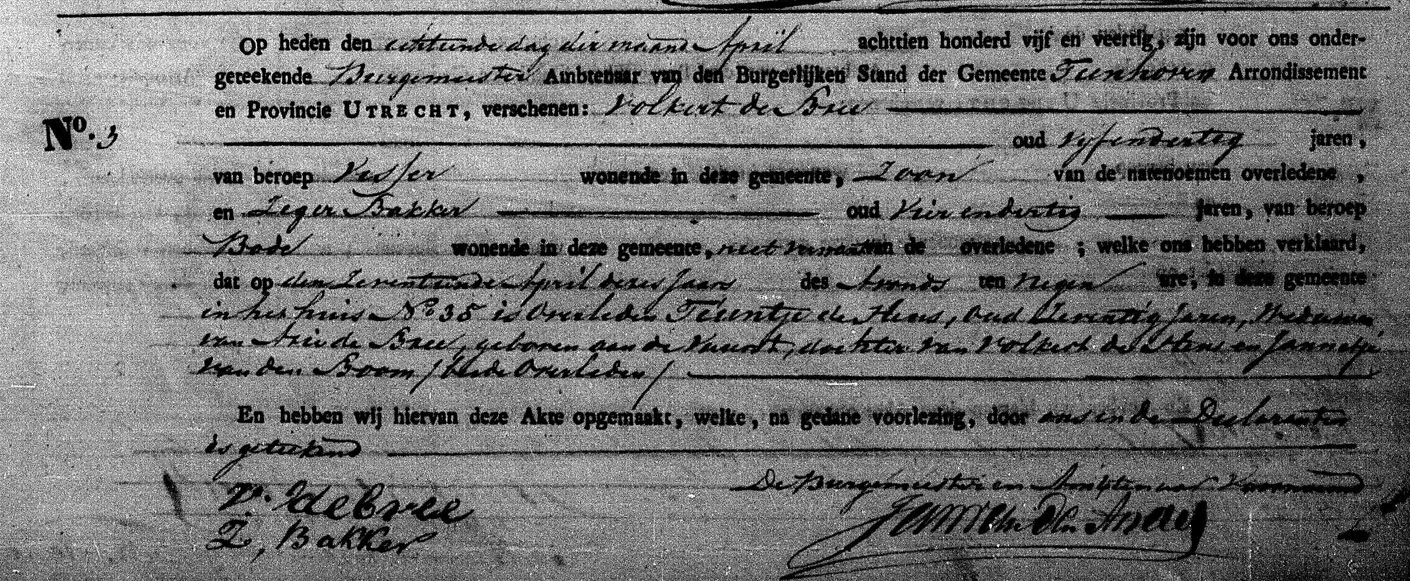 Op heden den achttiende dag der maand April achttien honderd vijf en veertig, zijn voor ons onder-
geteekende Burgemeester Ambtenaar van den Burgerlijken Stand der Gemeente Tienhoven Arrondissement
en Provincie UTRECHT, verschenen: Volkert de Bree
No. 3
oud Vyfendertig jaren,
van beroep Visser wonende in deze gemeente, Zoon van de natenoemen overledene,
en Zeger Bakker oud Vier endertig jaren, van beroep
Bode wonende in deze gemeente, niet verwant van de overledene; welke ons hebben verklaard,
dat op den Zeventiende April dezes Jaars des Avonds ten Negen ure, in deze gemeente
in het huis No 35 is Overleden Teuntje de Heus, Oud Zeventig Jaren, Weduwe
van Arie de Bree, geboren aan de Vuurst, dochter van Volkert de Heus en Jannetje
van den Boom / beide Overleden /
En hebben wij hiervan deze Akte opgemaakt, welke, na gedane voorlezing, door ons en de Declaranten
is geteekend
De Burgemeester en Ambtenaar Voornoemd
V. de bree
Z, Bakker